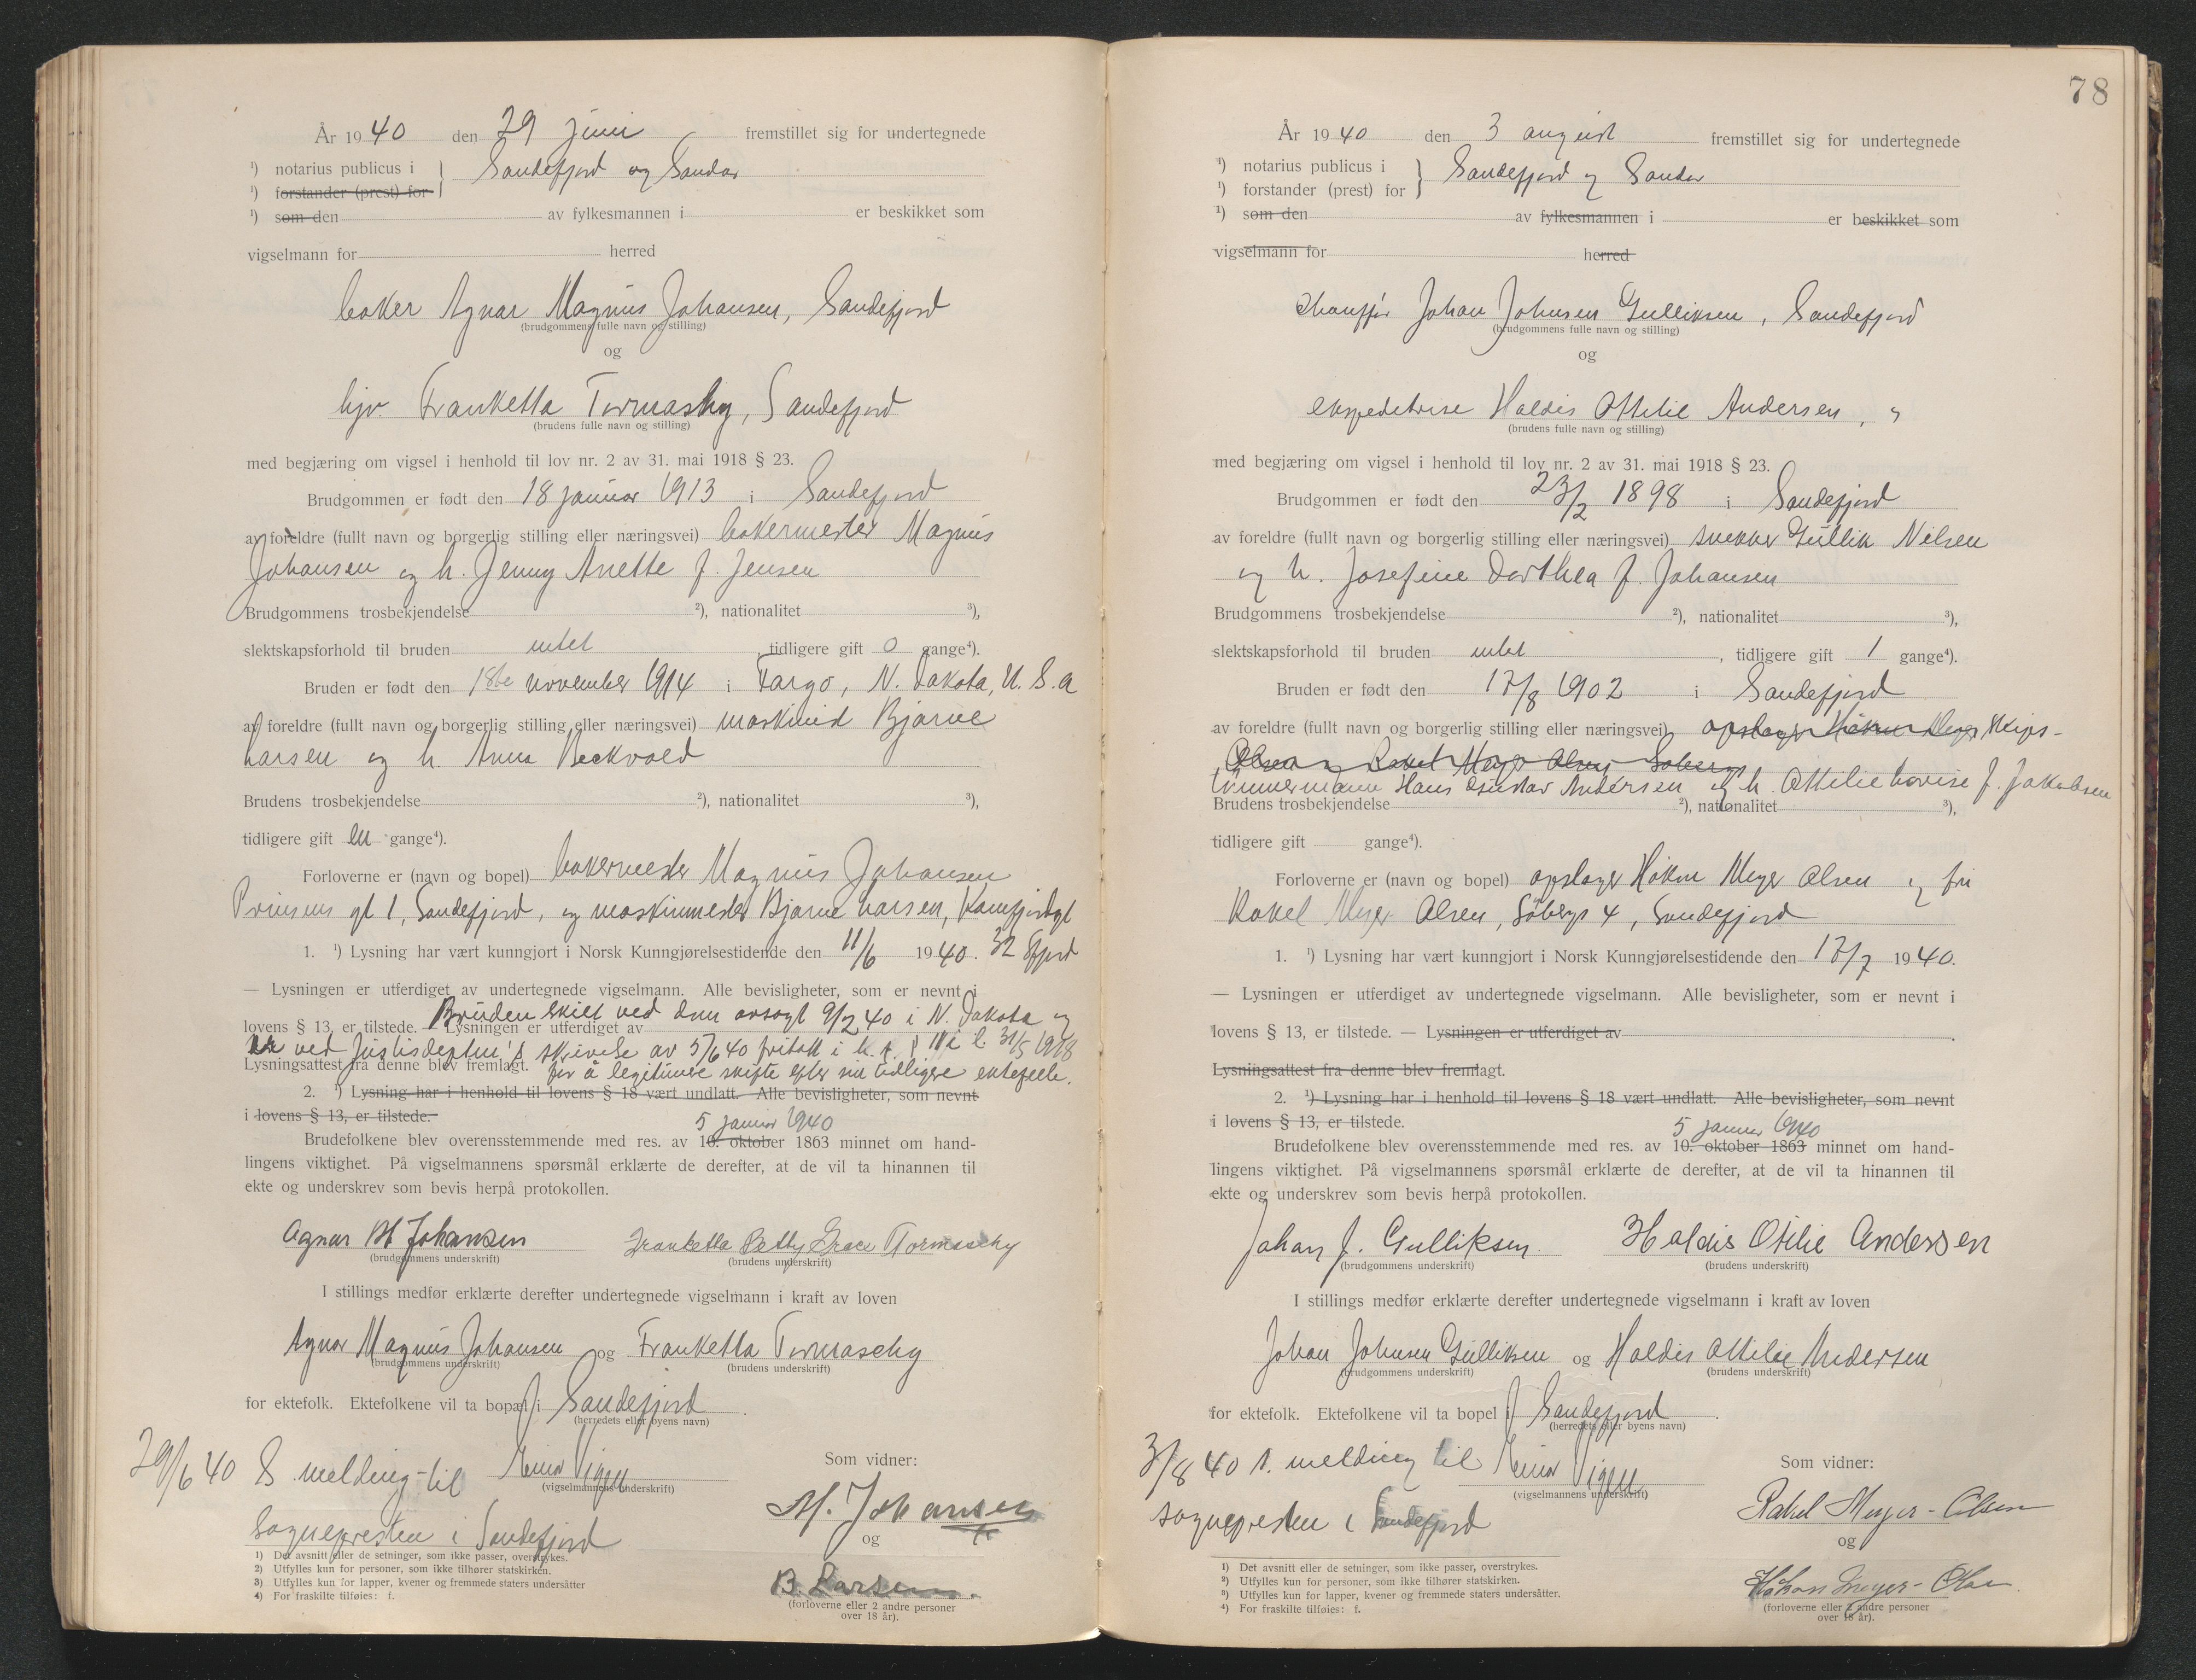 År 1940 den 29 juni fremstillet sig for undertegnede
¹) notarius publicus i } Sandefjord og Sandar
¹) forstander (prest) for
¹) som den av fylkesmannen i er beskikket som
vigselmann for herred
baker Agnar Magnus Johansen, Sandefjord
(brudgommens fulle navn og stilling)
og
hjv. Franketta Tormaschy, Sandefjord
(brudens fulle navn og stilling)
med begjæring om vigsel i henhold til lov nr. 2 av 31. mai 1918 § 23.
Brudgommen er født den 18 januar 1913 i Sandefjord
av foreldre (fullt navn og borgerlig stilling eller næringsvei) bakermester Magnus
Johansen og h. Jenny Anette f. Jensen
Brudgommens trosbekjendelse ²), nationalitet ³),
slektskapsforhold til bruden intet , tidligere gift 0 gange⁴).
Bruden er født den 18de november 1914 i Fargo, N. Dakota, U.S.A
av foreldre (fullt navn og borgerlig stilling eller næringsvei) maskinid Bjarne
Larsen og h. Anna Beckvold
Brudens trosbekjendelse ²), nationalitet ³),
tidligere gift en gange⁴).
Forloverne er (navn og bopel) bakermester Magnus Johansen
Prinsens gt 1, Sandefjord, og maskinmester Bjarne Larsen, Kamfjordgt
1. ¹) Lysning har vært kunngjort i Norsk Kunngjørelsestidende den 11/6 1940. 32 Sfjord
— Lysningen er utferdiget av undertegnede vigselmann. Alle bevisligheter, som er nevnt i
Bruden skilt ved dom avsagt 9/2 40 i N. Dakota og
lovens § 13, er tilstede. — Lysningen er utferdiget av
ved Justisdeptm's skrivelse av 5/6 40 fritatt i h. t. § 11 i l. 31/5 1918
Lysningsattest fra denne blev fremlagt. for å legitimere skifte efter sin tidligere ektefelle.
2. ¹) Lysning har i henhold til lovens § 18 vært undlatt. Alle bevisligheter, som nevnt
i lovens § 13, er tilstede.
5 januar 1940
Brudefolkene blev overensstemmende med res. av 10. oktober 1863 minnet om hand-
lingens viktighet. På vigselmannens spørsmål erklærte de derefter, at de vil ta hinannen til
ekte og underskrev som bevis herpå protokollen.
Agnar M Johansen Franketta Betty Grace Tormaschy
(brudgommens underskrift) (brudens underskrift)
I stillings medfør erklærte derefter undertegnede vigselmann i kraft av loven
Agnar Magnus Johansen og Franketta Tormaschy
(brudgommens underskrift) (brudens underskrift)
for ektefolk. Ektefolkene vil ta bopæl i Sandefjord .
(herredets eller byens navn)
29/6 40 S. melding til Einar Vigeu
(vigselmannens underskrift)
Som vidner:
Sognepresten i Sandefjord
M. Johansen
og
B. Larsen.
(forloverne eller 2 andre personer
over 18 år).
1) Det avsnitt eller de setninger, som ikke passer, overstrykes.
2) Utfylles kun for personer, som ikke tilhører statskirken.
3) Utfylles kun for lapper, kvener og fremmede staters undersåtter
4) For fraskilte tilføies: f.
78
År 1940 den 3 august fremstillet sig for undertegnede
¹) notarius publicus i } Sandefjord og Sandar
¹) forstander (prest) for
¹) som den av fylkesmannen i er beskikket som
vigselmann for herred
chauffør Johan Johnsen Gulliksen, Sandefjord
(brudgommens fulle navn og stilling)
og
ekspeditrise Haldis Ottilie Andersen, "
(brudens fulle navn og stilling)
med begjæring om vigsel i henhold til lov nr. 2 av 31. mai 1918 § 23.
Brudgommen er født den 23/2 1898 i Sandefjord
av foreldre (fullt navn og borgerlig stilling eller næringsvei) snekker Gullik Nilsen
og h. Josefine Dorthea f. Johansen
Brudgommens trosbekjendelse ²), nationalitet ³),
slektskapsforhold til bruden intet , tidligere gift 1 gange⁴).
Bruden er født den 17/8 1902 i Sandefjord
av foreldre (fullt navn og borgerlig stilling eller næringsvei) opslager Håkon Meyer skips-
Olsen og Rakel Meyer Olsen, Søbergs
tømmermann Hans Gustav Andersen og h. Ottilie Lovise f. Jakobsen
Brudens trosbekjendelse ²), nationalitet ³),
tidligere gift gange⁴).
Forloverne er (navn og bopel) opslager Håkon Meyer Olsen og fru
Rakel Meyer Olsen, Søbergs 4, Sandefjord
1. ¹) Lysning har vært kunngjort i Norsk Kunngjørelsestidende den 17/7 1940.
— Lysningen er utferdiget av undertegnede vigselmann. Alle bevisligheter, som er nevnt i
lovens § 13, er tilstede. — Lysningen er utferdiget av .
Lysningsattest fra denne blev fremlagt.
2. ¹) Lysning har i henhold til lovens § 18 vært undlatt. Alle bevisligheter, som nevnt
i lovens § 13, er tilstede.
5 januar 1940
Brudefolkene blev overensstemmende med res. av 10. oktober 1863 minnet om hand-
lingens viktighet. På vigselmannens spørsmål erklærte de derefter, at de vil ta hinannen til
ekte og underskrev som bevis herpå protokollen.
Johan J. Gulliksen. Haldis Otilie Andersen
(brudgommens underskrift) (brudens underskrift)
I stillings medfør erklærte derefter undertegnede vigselmann i kraft av loven
Johan Johnsen Gulliksen og Haldis Ottilie Andersen
(brudgommens underskrift) (brudens underskrift)
for ektefolk. Ektefolkene vil ta bopel i Sandefjord .
(herredets eller byens navn)
3/8 40 s. melding til Einar Vigeu
(vigselmannens underskrift)
Som vidner:
sognepresten i Sandefjord
Rakel Meyer-Olsen
og
Håkon Meyer-Olsen.
(forloverne eller 2 andre personer
over 18 år).
¹) Det avsnitt eller de setninger, som ikke passer, overstrykes.
²) Utfylles kun for personer, som ikke tilhører statskirken.
³) Utfylles kun for lapper, kvener og fremmede staters undersåtter.
⁴) For fraskilte tilføies: f.